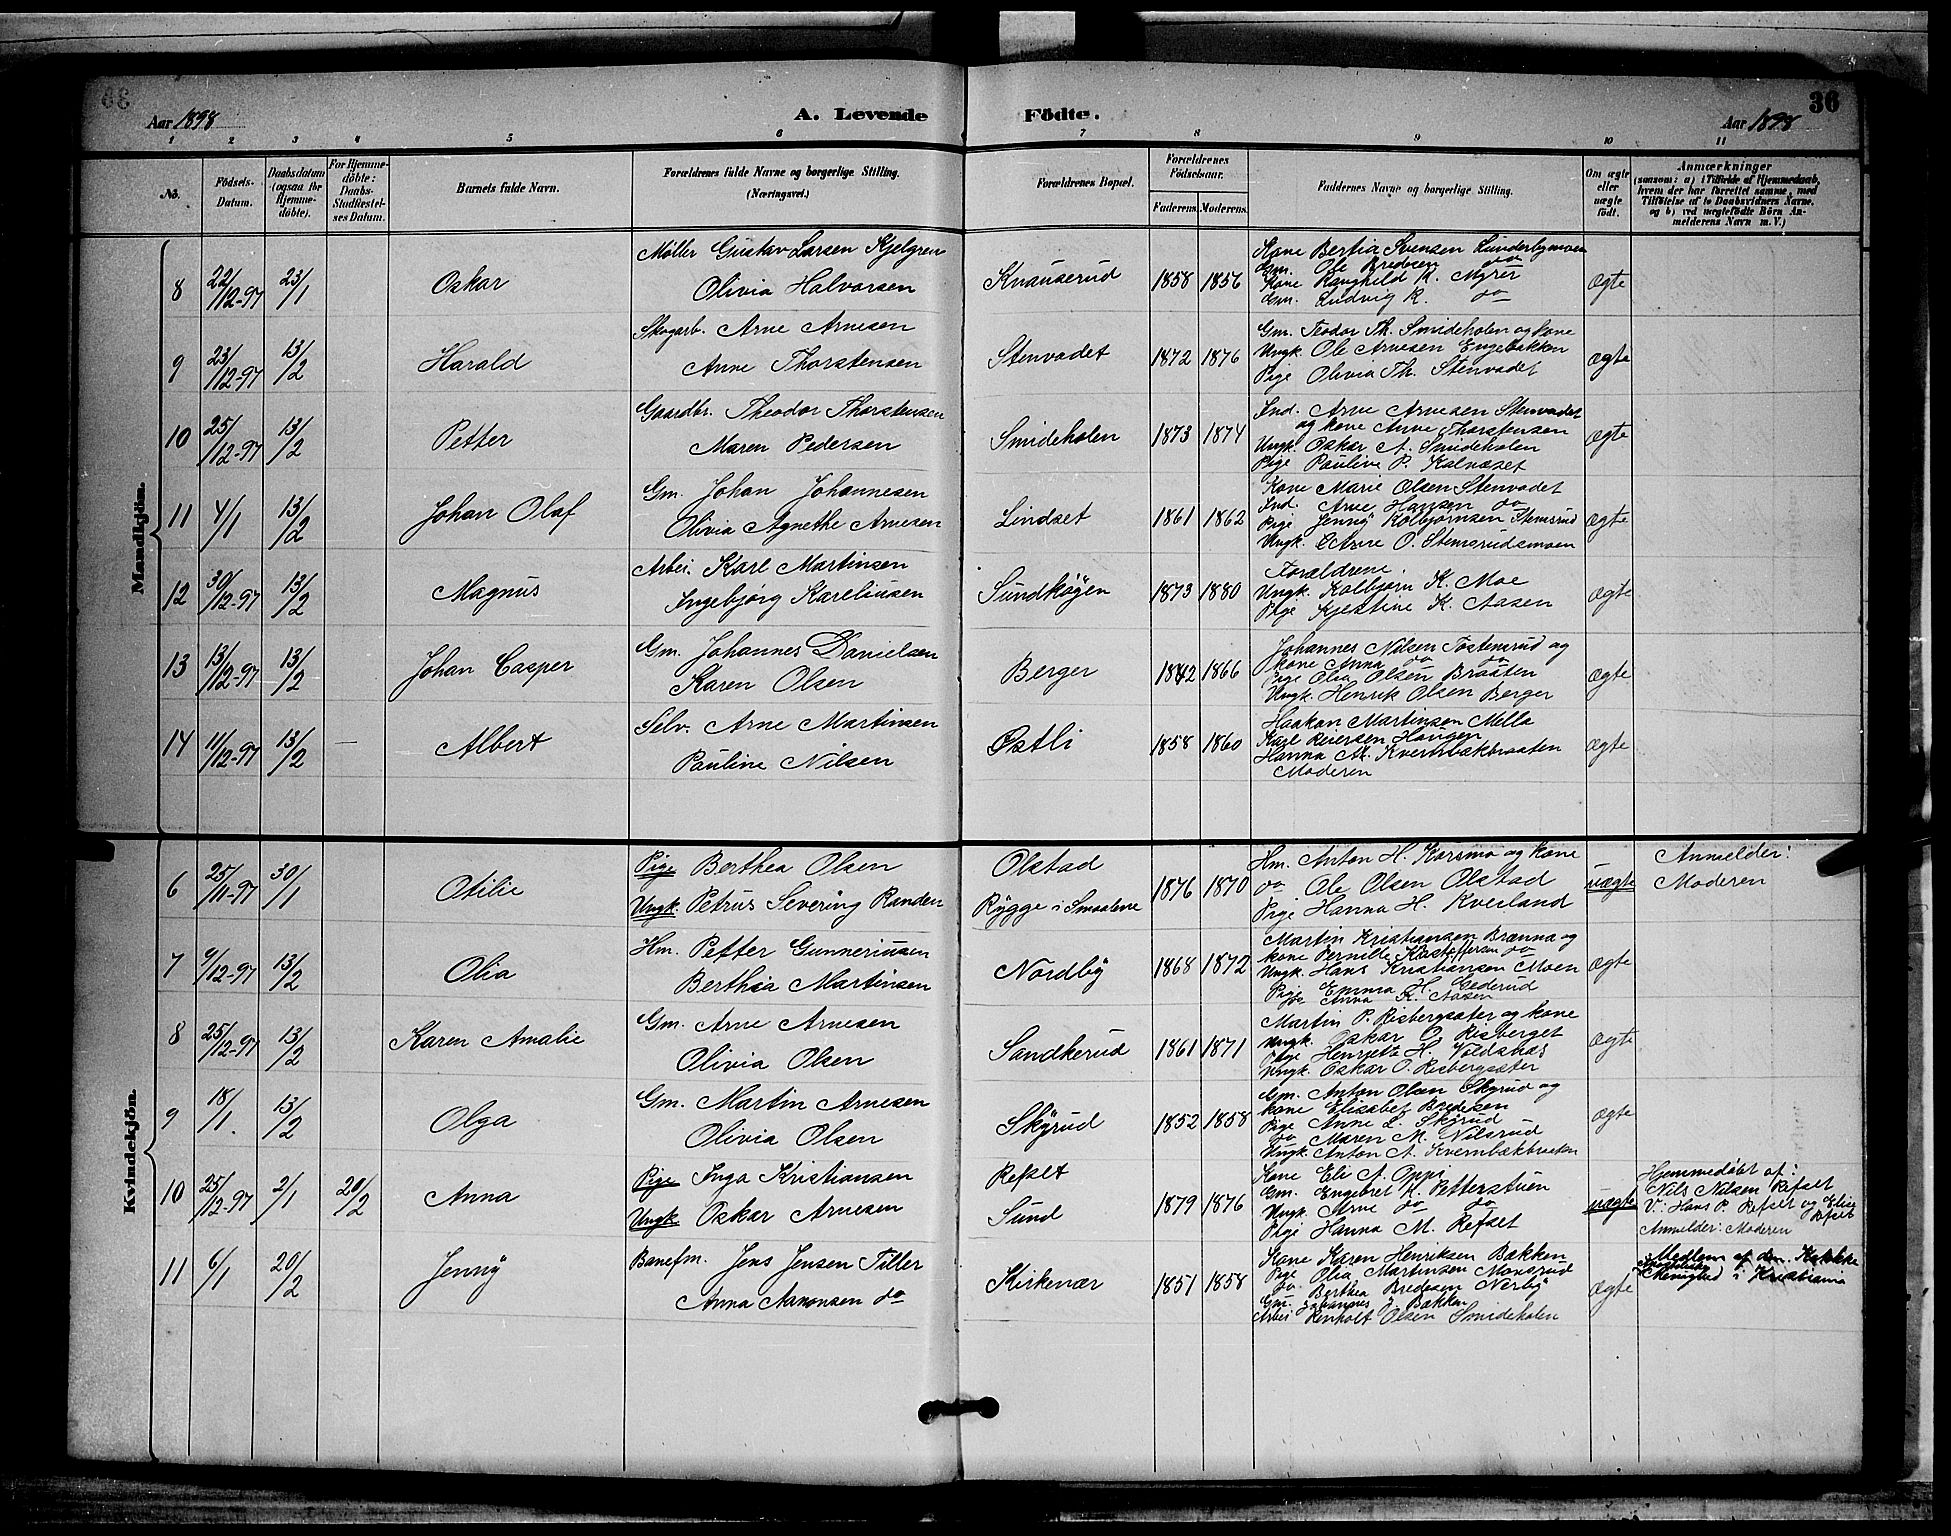 Aar 1898
A. Levende Fødte.
36
Aar 1898
1 2 3 4 5 6 7 8 9 10 11
No.
Fødsels-Datum.
Daabsdatum (ogsaa for Hjemme-døbte).
For Hjemme-døbte: Daabs-Stadfæstel-ses Datum.
Barnets fulde Navn.
Forældrenes fulde Navne og borgerlige Stilling. (Næringsvei.)
Forældrenes Bopæl.
Forældrenes Fødselsaar.
Faderens. Moderens.
Faddernes Navne og borgerlige Stilling.
Om ægte eller uægte født.
Anmærkninger
(saasom: a) i Tilfælde af Hjemmedaab, hvem der har forrettet samme, med Tilføielse af to Daabsvidners Navne, og b) ved uægtefødte Børn An-melderens Navn m. V.)
Mandkjøn.
8 22/12-97 23/1 Oskar
Møller Gustav Larsen Kjelgren
Olivia Halvorsen
Knauserud 1858 1856
Kone Bertia Svensen Lunderbymoen
Gm. Ole Bredesen do
Kone Ranghild K. Myrer
Gm. Ludvig K. do
ægte
9 23/12-97 13/2 Harald
Skogarb. Arne Arnesen
Anne Thorstensen
Stenvadet 1872 1876
Gm. Teodor Th. Smideholen og kone
Ungk. Ole Arnesen Engebakken
Pige Olivia Th. Stenvadet
ægte
10 25/12-97 13/2 Petter
Gaardbr. Theodor Thorstensen
Maren Pedersen
Smideholen 1873 1874
Ind. Arne Arnesen Stenvadet
og kone Anne Thorstensen
Ungk. Oskar A. Smideholen
Pige Pauline P. Kalvæset
ægte
11 4/1 13/2 Johan Olaf
Gm. Johan Johannesen
Olivia Agnethe Arnesen
Lindset 1861 1862
Kone Marie Olsen Stenvadet
Ind. Arne Hansen do
Pige Jenny Kolbjørnsen Stemsrud
Ungk. Arne O. Stemsrudsmoen
ægte
12 30/12-97 13/2 Magnus
Arbei. Karl Martinsen
Ingebjørg Kareliusen
Sundkøyen 1873 1880
Forældrene.
Ungk. Kolbjørn K. Moe
Pige Kjestine K. Aasen
ægte
13 13/12-97 13/2 Johan Casper
Gm. Johannes Danielsen
Karen Olsen
Berger 1842 1866
Johannes Nilsen Tostensrud og
kone Anna do do
Pige Olia Olsen Braaten
Ungk. Henrik Olsen Berger
ægte
14 11/12-97 13/2 — Albert
Selv. Arne Martinsen
Pauline Nilsen
Østli 1858 1860
Haakon Martinsen Mella
Karl Reiersen Haugen
Hanna M. Kvernbækbraaten
Moderen
ægte
Kvindekjøn.
6 25/11-97 30/1 Otilie
Pige Berthea Olsen
Ungk. Petrus Severing Randen
Olstad
Rygge i Smaalene
1876 1870
Hm. Anton H. Korsmo og kone
do Ole Olsen Olstad
Pige Hanna H. Kveiland
uægte
Anmelder:
Moderen
7 9/12-97 13/2 Olia
Hm. Petter Gunneriusen
Berthea Martinsen
Nordby 1868 1872
Martin Kristiansen Brænna og
kone Pernille Kristoffersen do
Ungk. Hans Kristiansen Moen
Pige Emma H. Gederud
Pige Anna K. Aasen
ægte
8 25/12-97 13/2 Karen Amalie
Gm. Arne Arnesen
Olivia Olsen
Sandkerud 1861 1871
Martin P. Risbergsæter og kone
Ungk. Oskar O. Risberget
Pige Henriette H. Voldsnæs
Ungk. Oskar O. Risbergsæter
ægte
9 18/1. 13/2 Olga
Gm. Martin Arnesen
Olivia Olsen
Skyrud 1852 1858
Gm. Anton Olsen Skyrud og
kone Elisabet Bredesen
Pige Anne L. Skyrud
do Maren M. Nilsrud
Ungk. Anton A. Kvernbækbraaten
ægte
10 25/12-97 2/1 20/2 Anna
Pige Inga Kristiansen
Ungk. Oskar Arnesen
Refset
Sund
1879 1876
Kone Eli A. Oppi
Gm. Engebret K. Petterstuen
Ungk. Arne do do
Pige Hanna M. Refset
uægte
Hjemmedøbt af:
Nils Nilsen Refset
V.: Hans P. Refset og Elise Refset
Anmelder: Moderen
11 6/1 20/2 Jenny
Banefm. Jens Jensen Tiller
Anna Aanonsen do
Kirkenær 1851 1858
Kone Karen Henriksen Bækken
Pige Olia Martinsen Monsrud
do. Berthea Bredesen Nerby
Gm. Johannes J. Bækken
Arbei Renholt Olsen Smideholen
ægte
Medlem af den Katolske
apostoliske Menighed i Kristiania